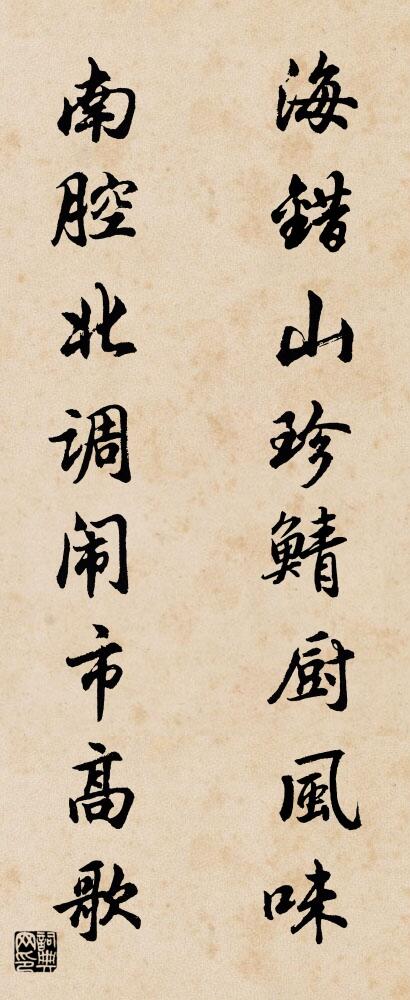 海錯山珍鯖厨風味
南腔北调闹市高歌
詞典网印